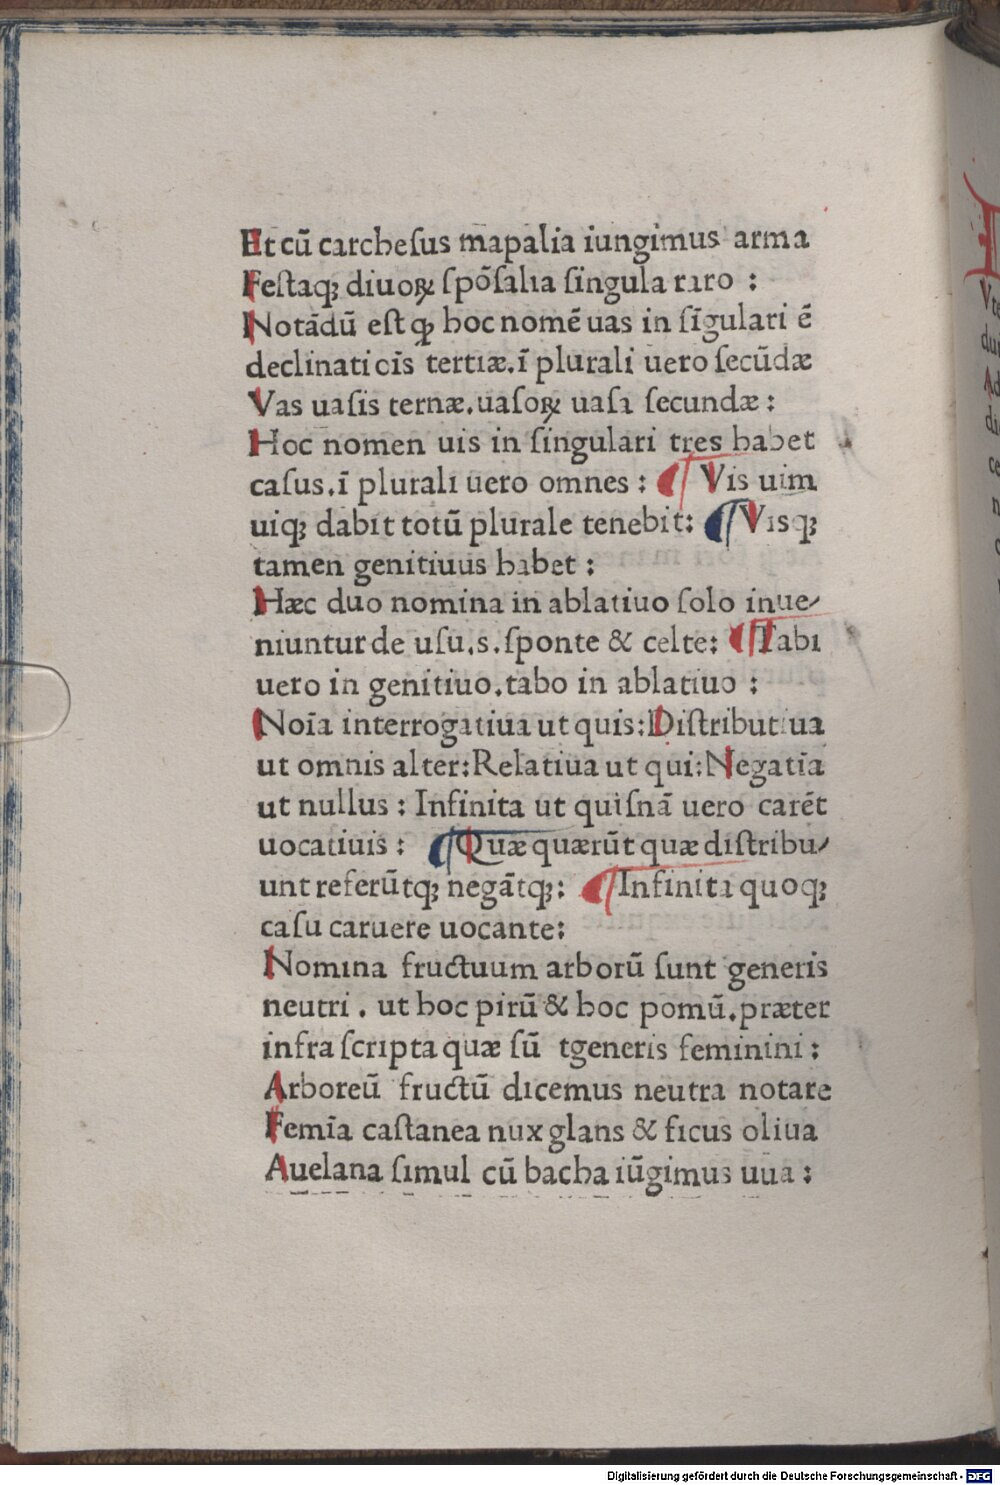 Et cū carcheſus mapalia iungimus arma
Feſtaqꝫ diuoꝝ ſpōſalia ſingula raro :
Notādū eſt ꝙ hoc nomē uas in ſīgulari ē
declinatiōis tertiæ.ī plurali uero ſecūdæ
Vas uaſis ternæ.uaſoꝝ uaſa ſecundæ :
Hoc nomen uis in ſingulari tres habet
caſus.ī plurali uero omnes : ¶ Vis uim
uiqꝫ dabit totū plurale tenebit: ¶ Visqꝫ
tamen genitiuus habet :
Hæc duo nomina in ablatiuo ſolo inue/
niuntur de uſu.s.ſponte & celte: ¶ Tabi
uero in genitiuo.tabo in ablatiuo :
Noīa interrogatiua ut quis:Diſtributiua
ut omnis alter:Relatiua ut qui:Negatīa
ut nullus : Infinita ut quiſnā uero carēt
uocatiuis : ¶ Quæ quærūt quæ diſtribu/
unt referūtqꝫ negātqꝫ: ¶ Infinita quoqꝫ
caſu caruere uocante:
Nomina fructuum arborū ſunt generis
neutri . ut hoc pirū & hoc pomū.præter
infra ſcripta quæ ſū tgeneris feminini :
Arboreū fructū dicemus neutra notare
Femīa caſtanea nux glans & ficus oliua
Auelana ſimul cū bacha iūgimus uua :
Digitalisierung gefördert durch die Deutsche Forschungsgemeinschaft - DFG